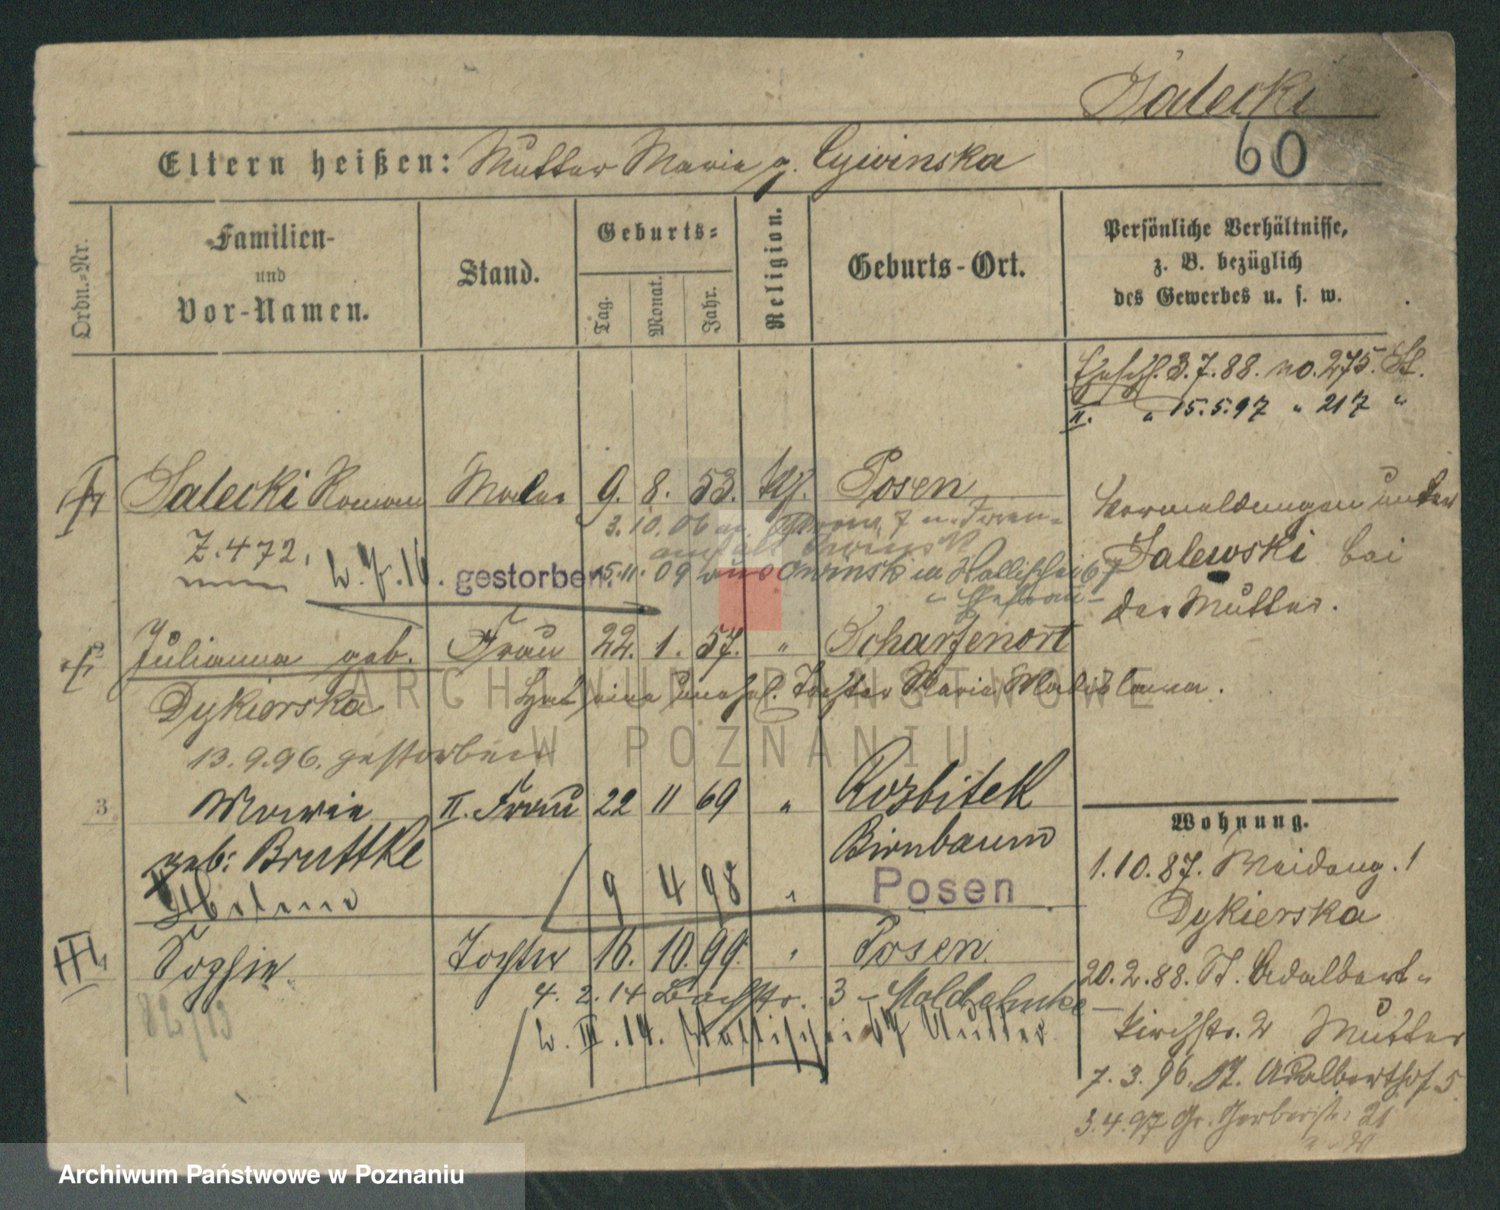 Salecki
60
Eltern heißen: Mutter Marie g. Cywinska
Ordn.-Nr.
Familien-
und
Vor-Namen.
Stand.
Geburts-
Tag.
Monat.
Jahr.
Religion.
Geburts-Ort.
Persönliche Verhältnisse,
z. B. bezüglich
des Gewerbes u. s. w.
Eheschl. 3.7.88. No. 275. St.
II. " 15.5.97 " 217 "
Salecki Roman Maler 9. 8. 53. kth. Posen
Z. 472.
gestorben.
3.10.06
15.11.09 aus Owinsk in Wallischei 67
Ehefrau
Vermeldungen unter
Salewski bei
der Mutter.
2 Julianna geb. Frau 22. 1. 57. " Scharfenort
Dykierska
Hat eine unehel. Tochter Marie Wladislawa.
13.9.96. gestorben
3 Marie II. Frau 22 11 69 " Rozbitek
geb: Bruttke Birnbaum
Helene 9 4 98 " Posen
III. Sophie Tochter 16. 10. 99. " Posen
82/13
4. 2. 14 Bachstr. 3
III. 14. Wallischei 67 Mutter
Wohnung.
1.10.87. 1
Dykierska
20.2.88. St. Adalbert-
kirchstr. 2 Mutter
7.3.96. St. Adalberthof 5
3.4.97 Gr. Gerberstr. 21
ARCHIWUM PAŃSTWOWE
W POZNANIU
Archiwum Państwowe w Poznaniu